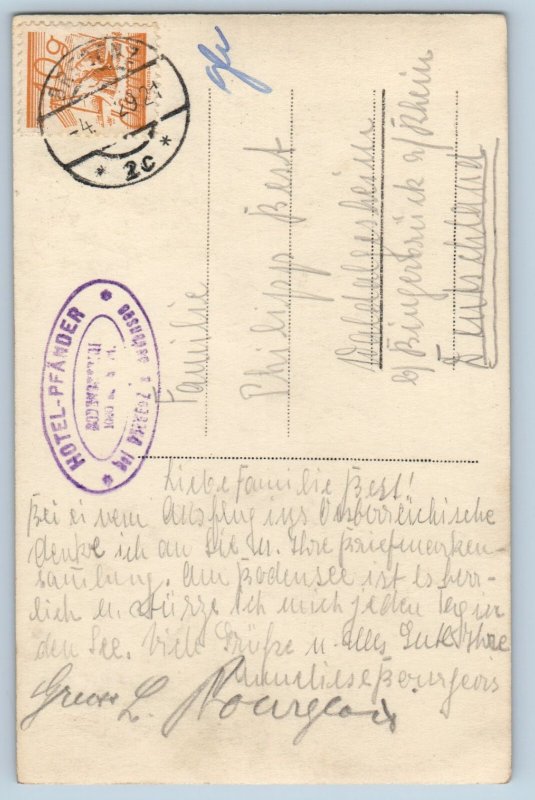 Liebe Familie Best!
Bei einem Ausflug ins Österreichische
denke ich an Sie u. Ihre Briefmarken-
sammlung. Am Bodensee ist es herr-
lich u. stürze ich mich jeden Tag in
den See. Viele Grüße u. alles Gute Ihre
Anneliese Bourgeois
L. Bourgeois
Familie
Philipp Best
Waldalgesheim
b/ Bingerbrück a/ Rhein
Deutschland
HOTEL-PFÄNDER
2c